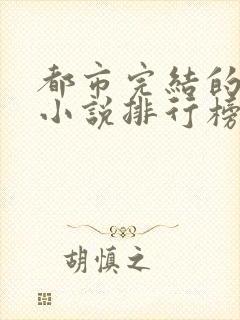 都市完結的
小說排行榜
胡慎之